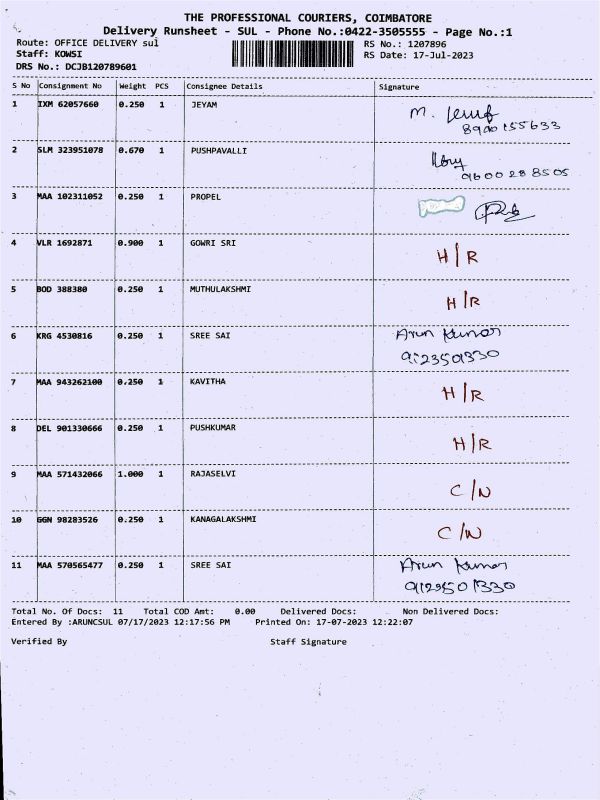 THE PROFESSIONAL COURIERS, COIMBATORE
Delivery Runsheet - SUL - Phone No.:0422-3505555 - Page No.:1
Route: OFFICE DELIVERY sul
Staff: KOWSI
DRS No.: DCJB120789601
RS No.: 1207896
RS Date: 17-Jul-2023
S No Consignment No Weight PCS Consignee Details Signature
1 IXM 62057660 0.250 1 JEYAM M.
8900155633
2 SLM 323951078 0.670 1 PUSHPAVALLI
9600288505
3 MAA 102311052 0.250 1 PROPEL
4 VLR 1692871 0.900 1 GOWRI SRI H/R
5 BOD 388380 0.250 1 MUTHULAKSHMI H/R
6 KRG 4530816 0.250 1 SREE SAI Arun Kumar
7 MAA 943262100 0.250 1 KAVITHA H/R
8 DEL 901330666 0.250 1 PUSHKUMAR H/R
9 MAA 571432066 1.000 1 RAJASELVI C/N
10 GGN 98283526 0.250 1 KANAGALAKSHMI C/N
11 MAA 570565477 0.250 1 SREE SAI Arun Kumar
Total No. Of Docs: 11 Total COD Amt: 0.00 Delivered Docs: Non Delivered Docs:
Entered By :ARUNCSUL 07/17/2023 12:17:56 PM Printed On: 17-07-2023 12:22:07
Verified By Staff Signature